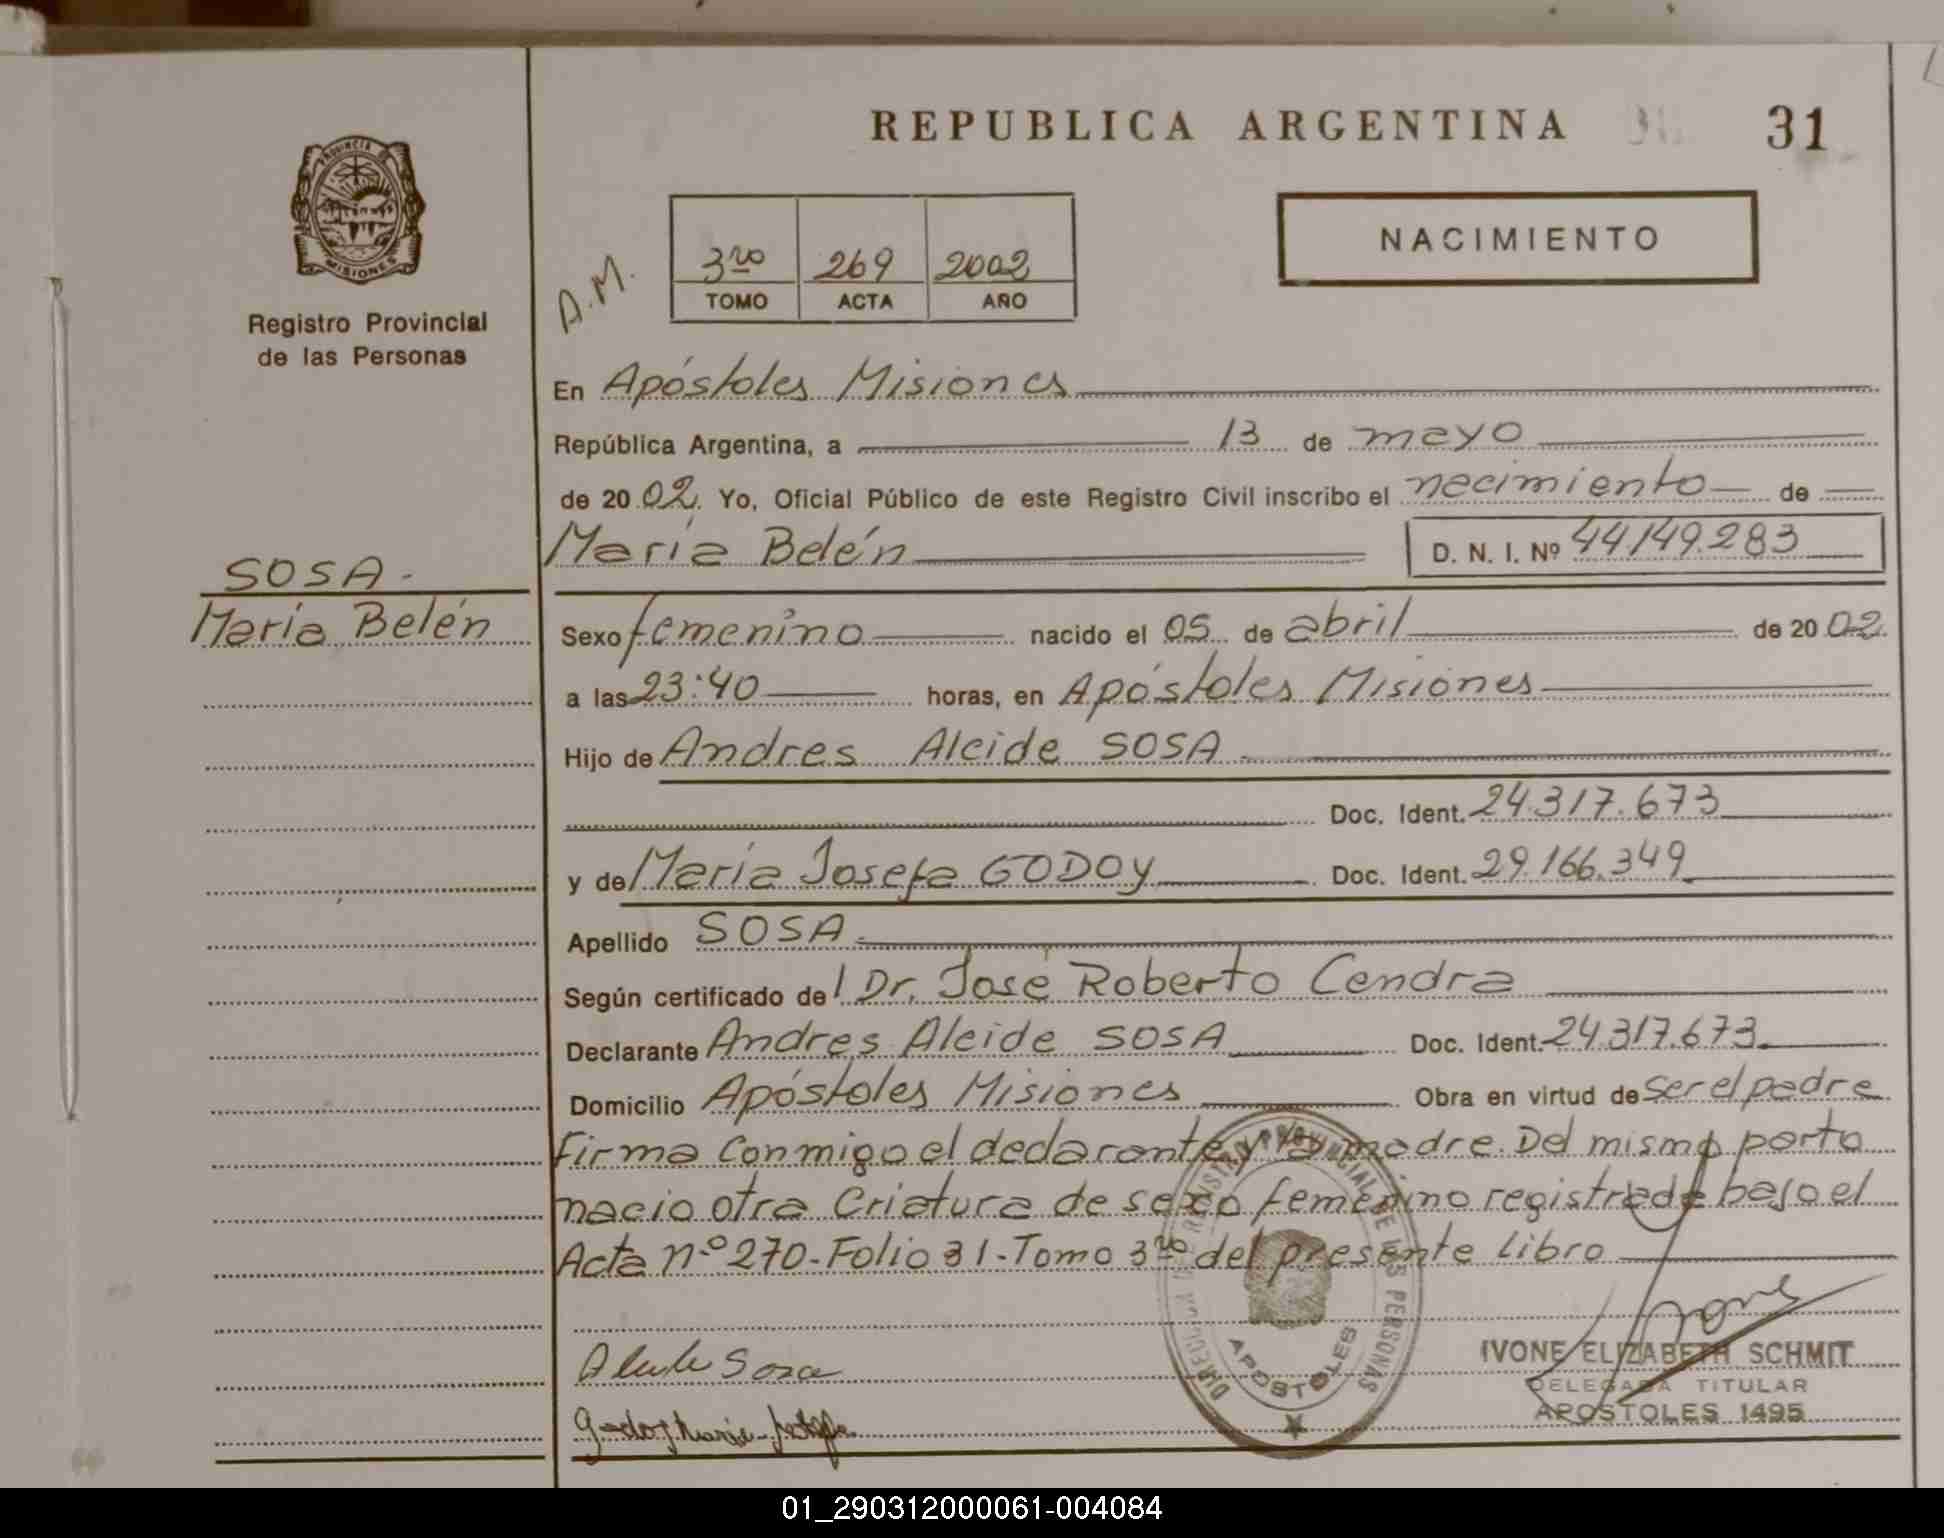 REPUBLICA ARGENTINA
31
PROVINCIA DE
MISIONES
Registro Provincial
de las Personas
A.M.
3ro 269 2002
TOMO ACTA AÑO
NACIMIENTO
En Apóstoles Misiones
República Argentina, a 13 de mayo
de 2002 Yo, Oficial Público de este Registro Civil inscribo el nacimiento de
María Belén D. N. I. Nº 44149.283
SOSA.
María Belén
Sexo femenino nacido el 05 de abril de 2002
a las 23:40 horas, en Apóstoles Misiones
Hijo de Andres Alcide SOSA
Doc. Ident. 24.317.673
y de María Josefa GODOY Doc. Ident. 29.166.349
Apellido SOSA
Según certificado del Dr. José Roberto Cendra
Declarante Andres Alcide SOSA Doc. Ident. 24.317.673
Domicilio Apóstoles Misiones Obra en virtud de ser el padre
Firma conmigo el declarante y la madre. Del mismo parto
nacio otra criatura de sexo femenino registrada bajo el
Acta n.º 270-Folio 31-Tomo 3ro del presente libro
DIRECCION DE REGISTRO PROVINCIAL DE LAS PERSONAS
APOSTOLES
Alcide Sosa
Godoy María Josefa
IVONE ELIZABETH SCHMIT
DELEGADA TITULAR
APOSTOLES 1495
01_290312000061-004084